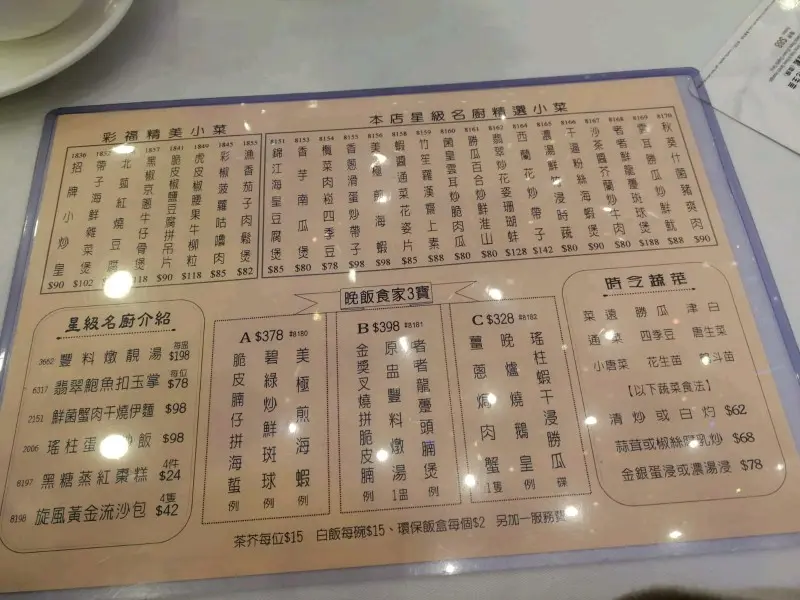 彩福精美小菜
1836 招牌小炒皇 $90
帶子海鮮雜菜煲 $102
北菇紅燒豆腐
黑椒京蔥牛仔骨煲
1841 脆皮椒鹽豆腐拼吊片 $90
1849 虎皮椒腰果牛柳粒 $118
1845 彩椒菠蘿咕嚕肉 $85
1855 漁香茄子肉鬆煲 $82
本店星級名廚精選小菜
8151 錦江海皇豆腐煲 $85
8153 香芋南瓜煲 $80
8154 欖菜肉崧四季豆 $78
8155 香蔥滑蛋炒帶子 $98
8156 美極煎海蝦 $98
8158 蝦醬通菜花姿片 $85
8159 竹笙羅漢齋上素 $88
8160 菌皇雲耳炒脆肉瓜 $80
8161 勝瓜百合炒鮮淮山 $80
8162 翡翠炒花姿珊瑚蚌 $128
8164 西蘭花炒帶子 $142
8165 濃湯鮮竹浸時蔬 $80
8166 干逼粉絲海蝦煲 $90
8167 沙茶醬芥蘭炒牛肉 $80
8168 者者鮮龍躉斑球煲 $188
8169 雲耳勝瓜炒鮮魷 $88
8170 秋葵什菌豬爽肉 $90
星級名廚介紹
3662 豐料燉靚湯 每窩 $198
6317 翡翠鮑魚扣玉掌 每位 $78
2151 鮮菌蟹肉干燒伊麵 $98
2006 瑤柱蛋 炒飯 $98
8197 黑糖蒸紅棗糕 4件 $24
8198 旋風黃金流沙包 4隻 $42
晚飯食家3寶
A $378 #8180
美極煎海蝦 例
碧綠炒鮮斑球 例
脆皮腩仔拼海蜇 例
B $398 #8181
者者龍躉頭腩煲 例
原盅豐料燉湯 1盅
金獎叉燒拼脆皮腩 例
C $328 #8182
瑤柱蝦干浸勝瓜 碟
晚爐燒鵝皇 例
薑蔥焗肉蟹 1隻
時令蔬菜
菜遠 勝瓜 津白
通菜 四季豆 唐生菜
小唐菜 花生苗 斗苗
【以下蔬菜食法】
清炒或白灼 $62
蒜茸或椒絲腐乳炒 $68
金銀蛋浸或濃湯浸 $78
茶芥每位$15 白飯每碗$15、環保飯盒每個$2 另加一服務費